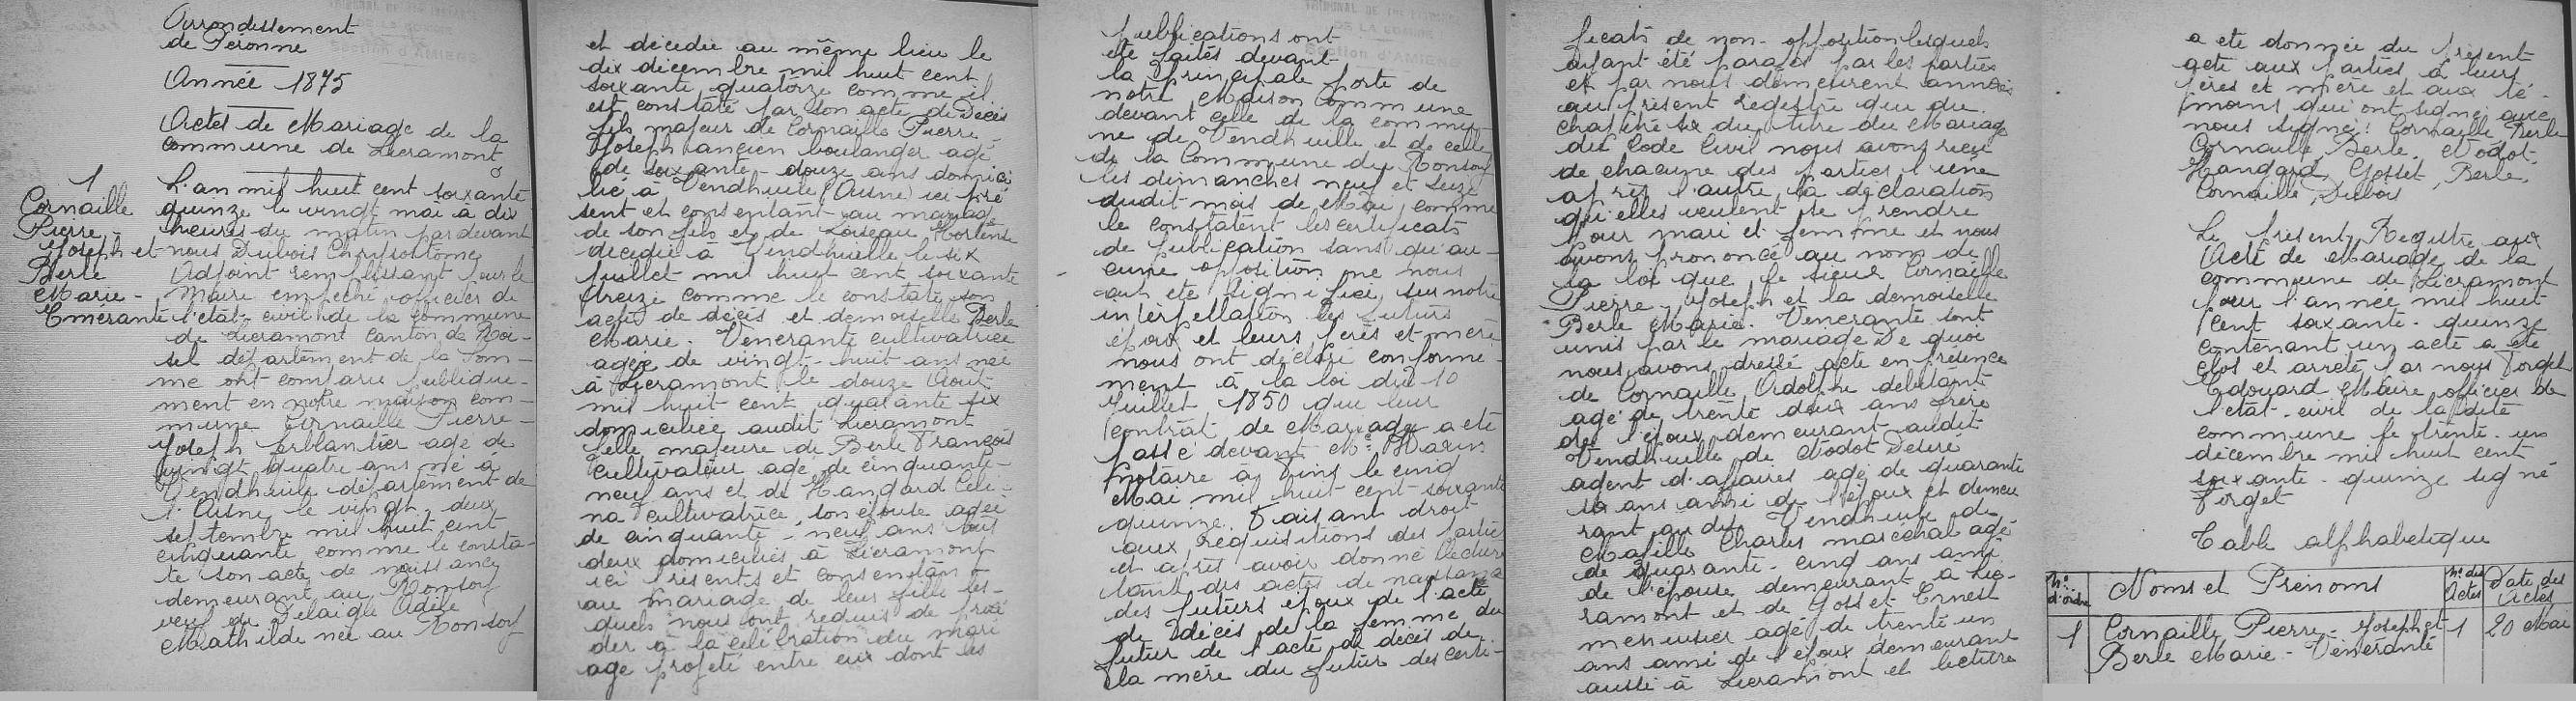 Arrondissement
de Péronne
Année 1875
Actes de Mariage de la
commune de Liéramont
1
Cornaille
Pierre
Joseph et
Berle
Marie-
Emérante
L'an mil huit cent soixante
quinze le vingt mai à dix
heures du matin par devant
nous Dubois Chrysostôme
Adjoint remplissant pour le
Maire empêché officier de
l'état-civil de la commune
de Lieramont canton de Roi-
sel département de la Som-
me ont comparu publique-
ment en notre maison com-
mune Cornaille Pierre-
Joseph ferblantier agé de
vingt quatre ans né à
Vendhuile département de
l'Aisne le vingt-deux
septembre mil huit cent
cinquante comme le consta-
te son acte de naissance
demeurant au Ronsoy
veuf de Delaigle Adèle
Mathilde née au Ronsoy
et décédée au même lieu le
dix décembre mil huit cent
soixante quatorze comme il
est constaté par son acte de Décès
fils majeur de Cornaille Pierre
Joseph ancien boulanger agé
de soixante-douze ans domici
lié à Vendhuile (Aisne) ici pré
sent et consentant au mariage
de son fils et de Loiseau Hortense
décédée à Vendhuile le six
juillet mil huit cent soixante
treize comme le constate son
acte de décès et demoiselle Berle
Marie-Vénérante cultivatrice
agée de vingt-huit ans née
à Lieramont le douze Aout
mil huit cent quarante six
domiciliée audit Lieramont
fille majeure de Berle François
cultivateur agé de cinquante-
neuf ans et de Hangard Céli-
na cultivatrice, son épouse agée
de cinquante-neuf ans tous
deux domiciliés à Lieramont
ici présents et consentant
au mariage de leur fille les-
quels nous ont requis de procé
der à la célébration du mari
age projeté entre eux dont les
publications ont
été faites devant
la principale porte de
notre Maison Commune
devant celle de la commu
ne de Vendhuile et de celle
de la Commune du Ronsoy
les dimanches neuf et seize
dudit mois de Mai, comme
le constatent les certificats
de publication sans qu'au-
cune opposition ne nous
ait été signifiée, sur notre
interpellation les futurs
époux et leurs pères et mère
nous ont déclaré conformé-
ment à la loi du 10
Juillet 1850 que leur
contrat de Mariage a été
passé devant Me
notaire à Fins le cinq
Mai mil huit cent soixante
quinze. Faisant droit
aux réquisitions des parties
et après avoir donné lecture
tant des actes de naissance
des futurs époux de l'acte
de décès de la femme du
futur de l'acte de décès de
la mère du futur des certi-
ficats de non-opposition lesquels
ayant été parafés par les parties
et par nous demeurent annexés
au présent registre que du
chapitre six du titre du Mariage
du Code Civil nous avons reçu
de chacune des parties l'une
après l'autre la déclaration
qu'elles veulent se prendre
pour mari et femme et nous
avons prononcé au nom de
la loi que le sieur Cornaille
Pierre-Joseph et la demoiselle
Berle Marie-Vénérante sont
unis par le mariage De quoi
nous avons dressé acte en présence
de Cornaille Adolphe débitant
agé de trente deux ans frère
de l'époux demeurant audit
Vendhuile de Nodot Désiré
agent d'affaires agé de quarante
six ans ami de l'époux et demeu
rant au dit Vendhuile de
Charles maréchal agé
de quarante-cinq ans ami
de l'épouse demeurant à Lié-
ramont et de Gosset Ernest
menuisier agé de trente un
ans ami de l'époux demeurant
aussi à Lieramont et lecture
a été donnée du présent
acte aux parties à leurs
pères et mère et aux té-
moins qui ont signé avec
nous signé: Cornaille, Berle
Cornaille, Berle, Nodot,
Hangard, Gosset, Berle,
Cornaille, Dubois
Le présent Registre aux
Acte de Mariage de la
commune de Lieramont
pour l'année mil huit
cent soixante-quinze
contenant un acte a été
clos et arrêté par nous Forget
Edouard Maire officier de
l'état-civil de la dite
commune le trente-un
décembre mil huit cent
soixante-quinze signé
Forget
Table alphabétique
Nos d'ordre Noms et Prénoms Nos des Actes Date des Actes
1 Cornaille Pierre-Joseph et 1 20 Mai
Berle Marie-Vénérante